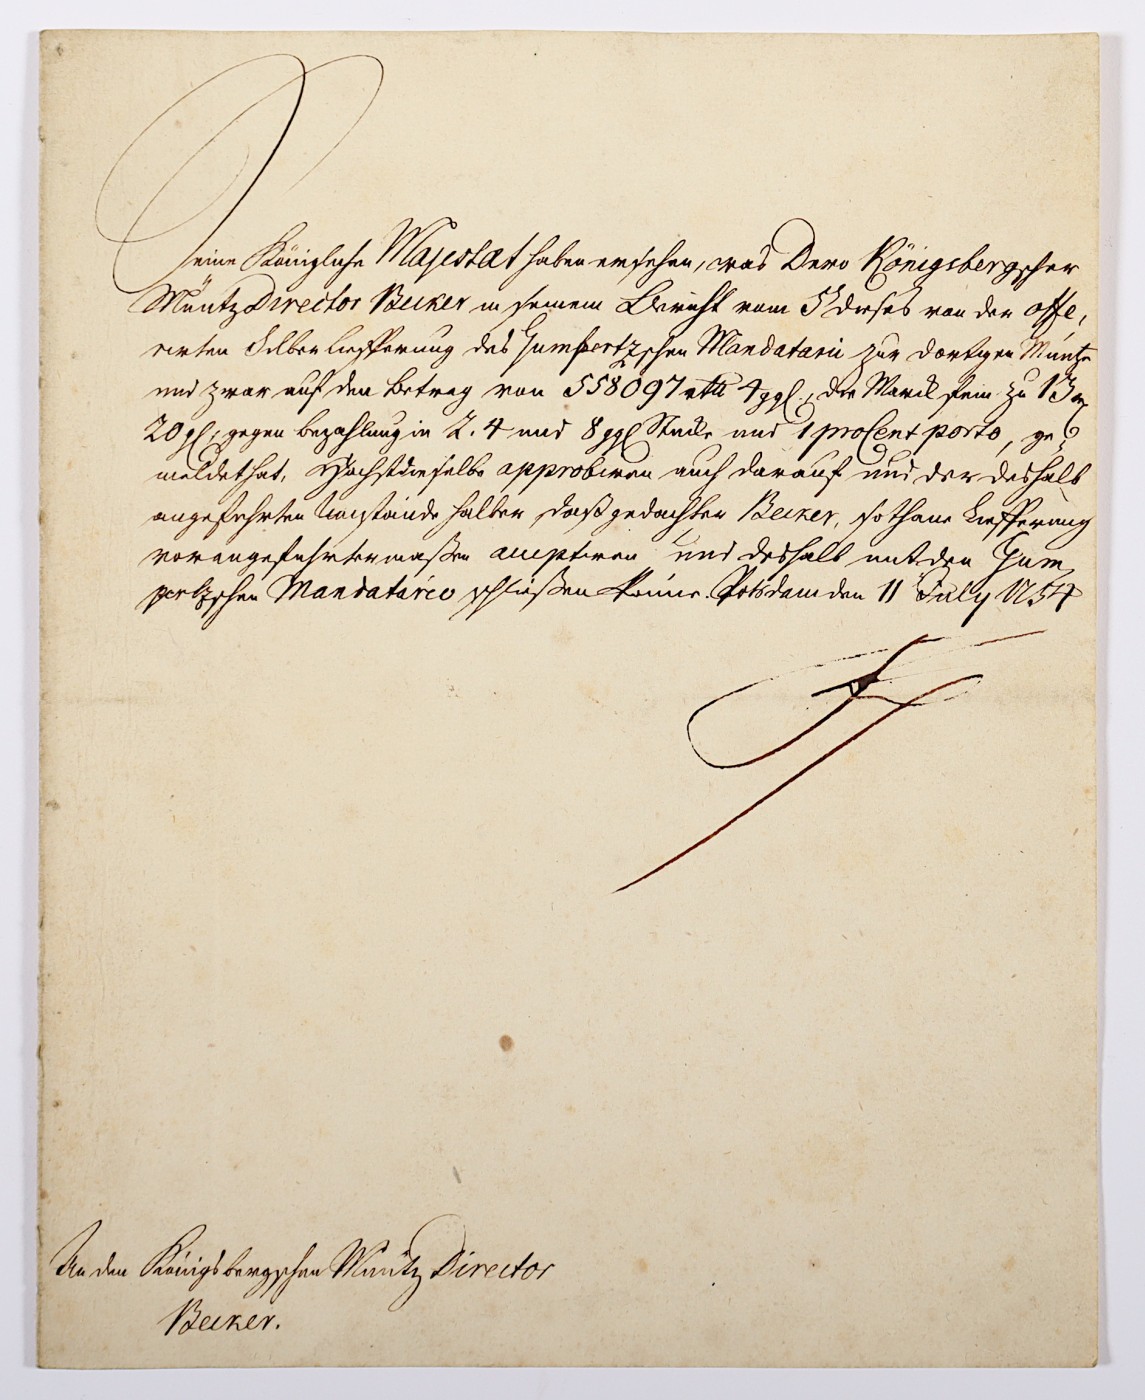 Seine Königliche Majestæt haben ersehen, was Dero Königsbergscher
Müntz Director Becker in seinem Bericht vom 5t dieses von der offe,
rirten Silber Liefferung des Gumpertzschen Mandatarii zur dortigen Müntze
und zwar auf den Betrag von 558097 rthl 4 ggl., die Marck fein zu 13 r
20 gl, gegen bezahlung in 2. 4 und 8 ggl Stücke und 1 proCent porto, ge,
meldet hat. Höchstdieselbe approbiren auch darauf und der deshalb
angeführten Umstände halber, daß gedachter Becker, sothane Liefferung
vorangeführtermaßen acceptiren und deshalb mit den Gum,
pertzschen Mandatario schließen könne. Potsdam den 11 July 1754
An den Königsbergschen Müntz Director
Becker.